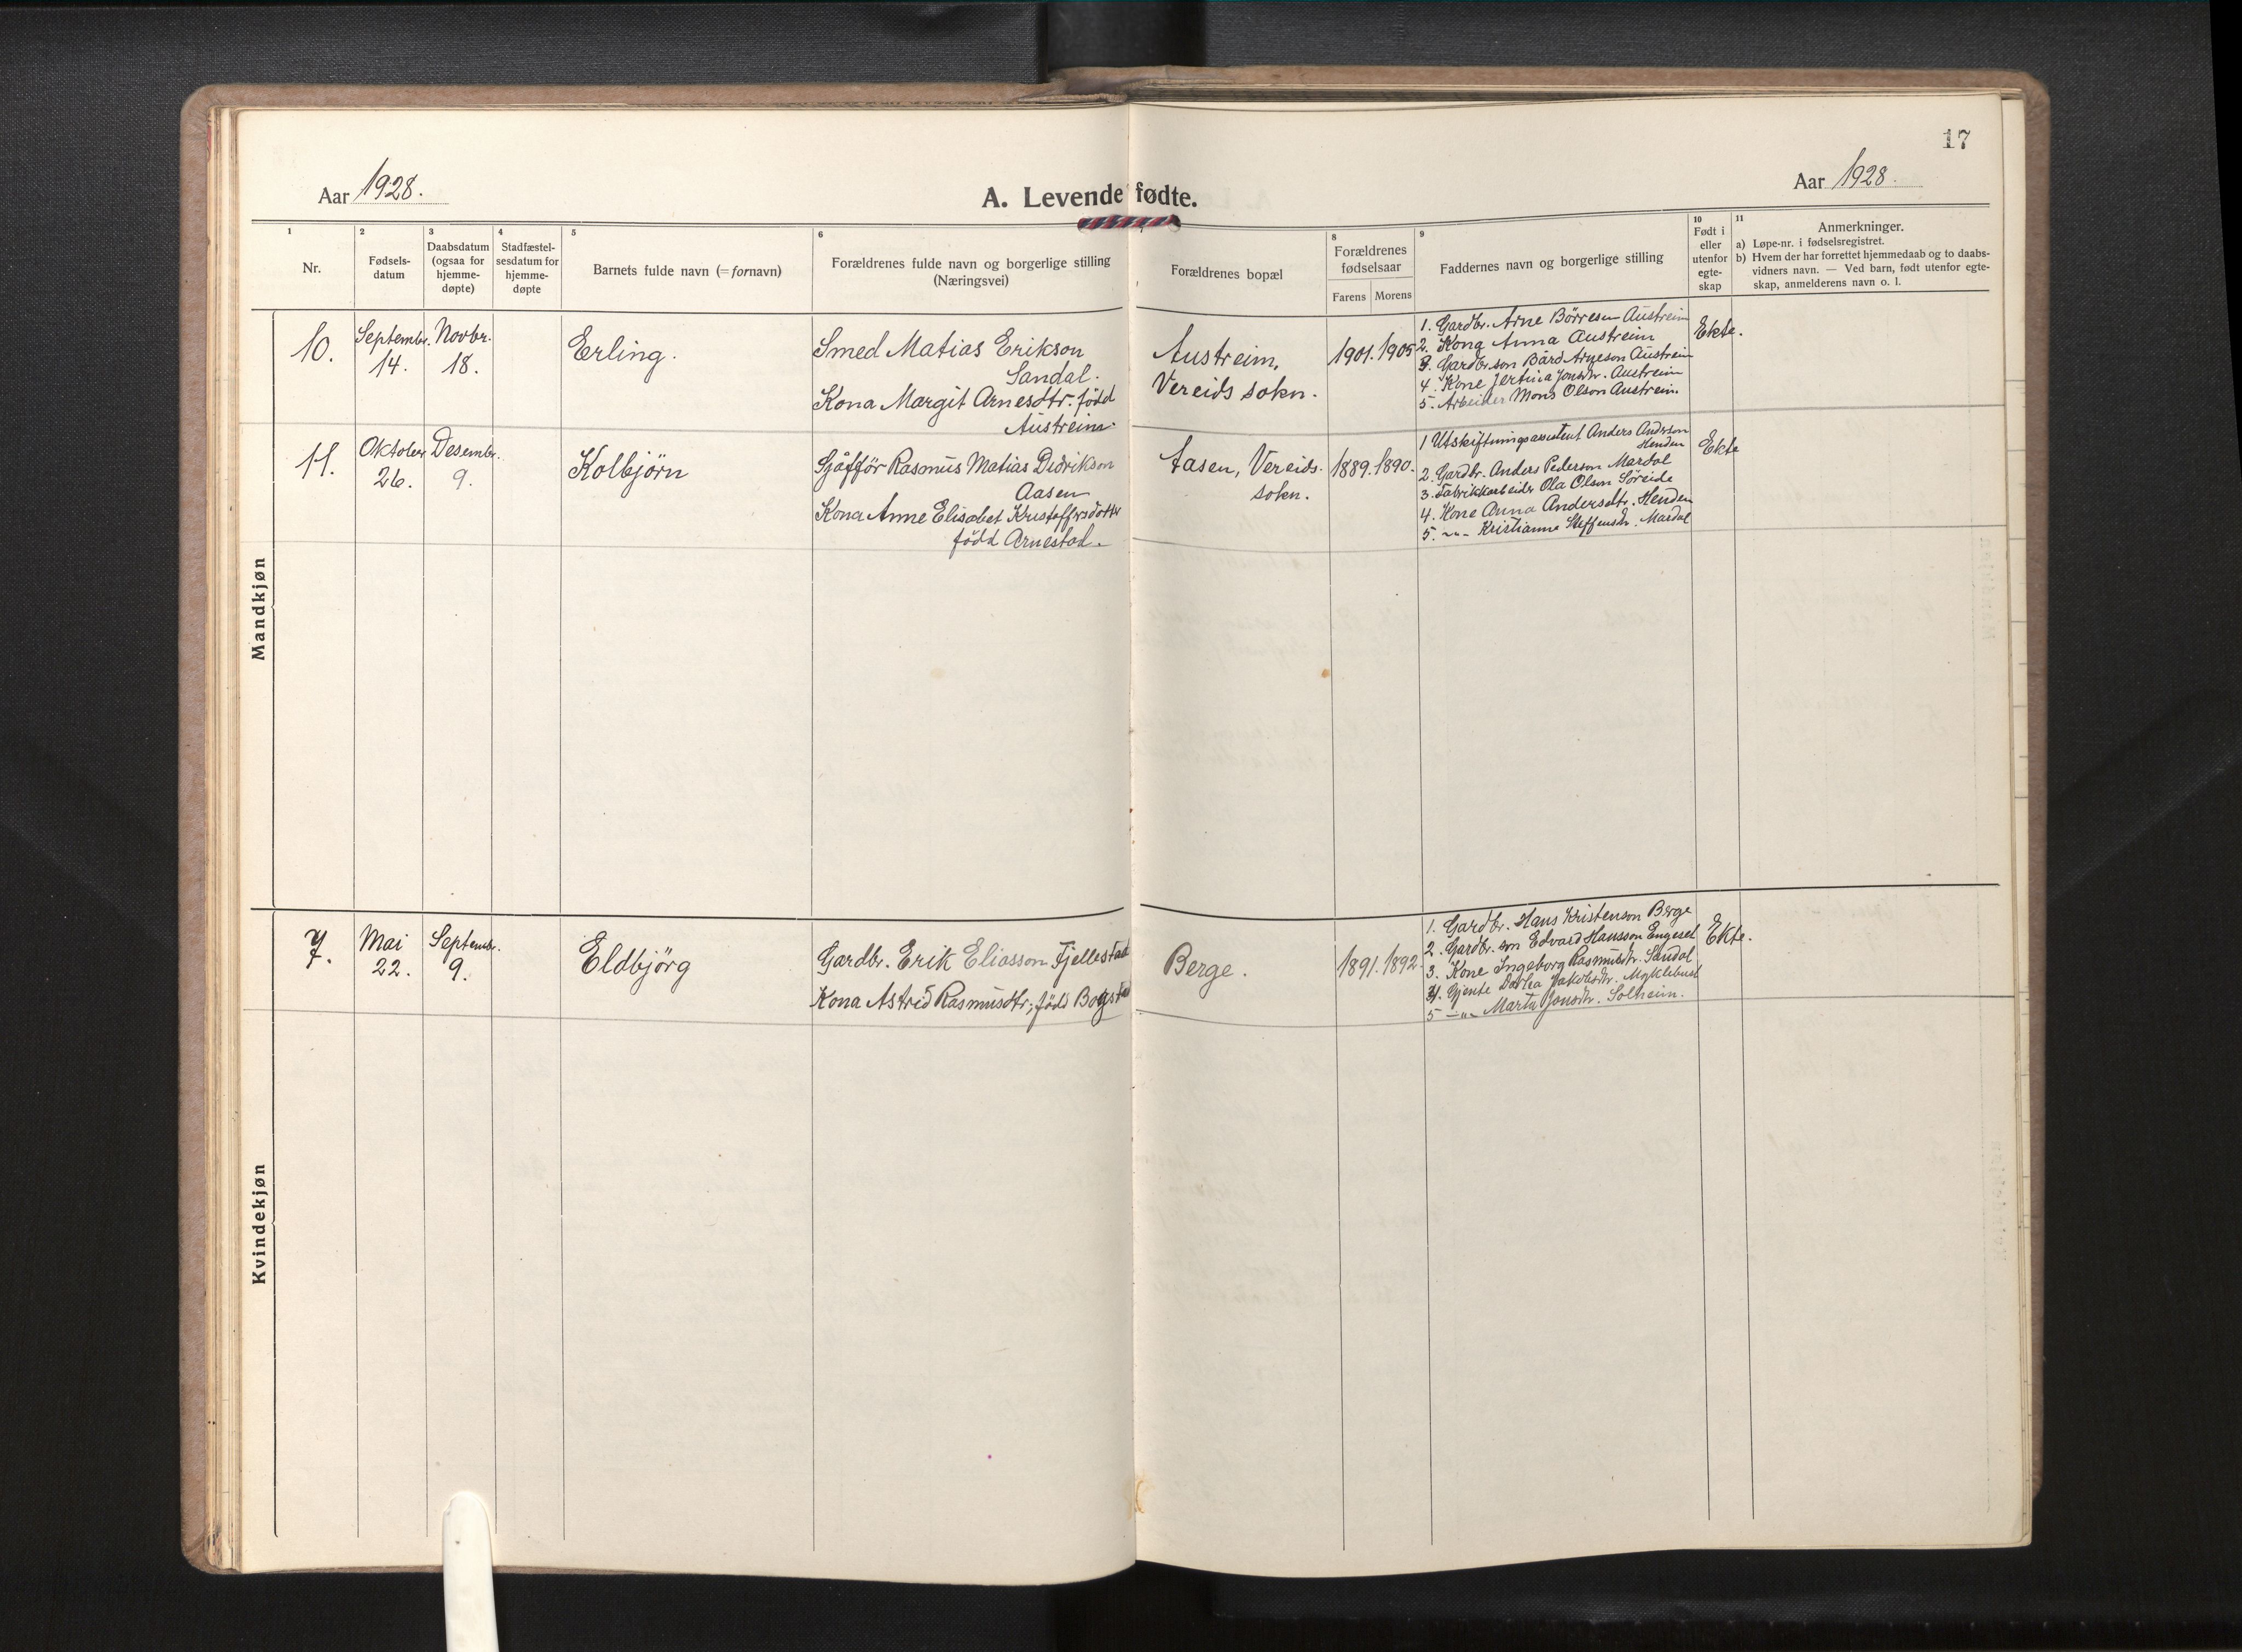 17
Aar 1928.
A. Levende fødte.
Aar 1928.
1
Nr.
2
Fødsels-
datum
3
Daabsdatum
(ogsaa for
hjemme-
døpte)
4
Stadfæstel-
sesdatum for
hjemme-
døpte
5
Barnets fulde navn (=fornavn)
6
Forældrenes fulde navn og borgerlige stilling
(Næringsvei)
Forældrenes bopæl
8
Forældrenes
fødselsaar
Farens Morens
9
Faddernes navn og borgerlige stilling
10
Født i
eller
utenfor
egte-
skap
11
Anmerkninger.
a) Løpe-nr. i fødselsregistret.
b) Hvem der har forrettet hjemmedaab og to daabs-
vidners navn. — Ved barn, født utenfor egte-
skap, anmelderens navn o. l.
Mandkjøn
10.
Septembr.
14.
Novbr.
18.
Erling.
Smed Matias Erikson
Sandal.
Kona Margit Arnesdtr. född
Austreim.
Austreim,
Vereids sokn.
1901. 1905
1. Gardbr. Arne Börresen Austreim
2. Kona Anna Austreim
3. Gardbr.son Bård Arneson Austreim
4. Kone Jertina Jonsdtr. Austreim
5. Arbeider Mons Olson Austreim.
Ekte.
11.
Oktober
26.
Desembr.
9.
Kolbjörn
Sjåfför Rasmus Matias Didrikson
Aasen
Kona Anne Elisabet Kristoffersdotter
född Arnestad.
Aasen, Vereids-
sokn.
1889. 1890.
1 Utskiftningsassistent Anders Anderson
Henden
2. Gardbr. Anders Pederson Mardal
3. Fabrikkarbeider Ola Olson Söreide
4. Kone Anna Andersdtr. Henden
5. -"- Kristianne Steffensdtr. Mardal
Ekte
Kvindekjøn
7.
Mai
22.
Septembr.
9.
Eldbjörg
Gardbr. Erik Eliasson Fjellestad
Kona Astrid Rasmusdtr; född Bogstad
Berge.
1891. 1892.
1. Gardbr. Hans Kristenson Berge
2. Gardbr. son Edvard Hansson Engeset
3. Kone Ingeborg Rasmusdtr. Sandal
4. Gjente Dorthea Jakobsdtr. Myklebust
5 -"- Marta Jonsdtr. Solheim.
Ekte.